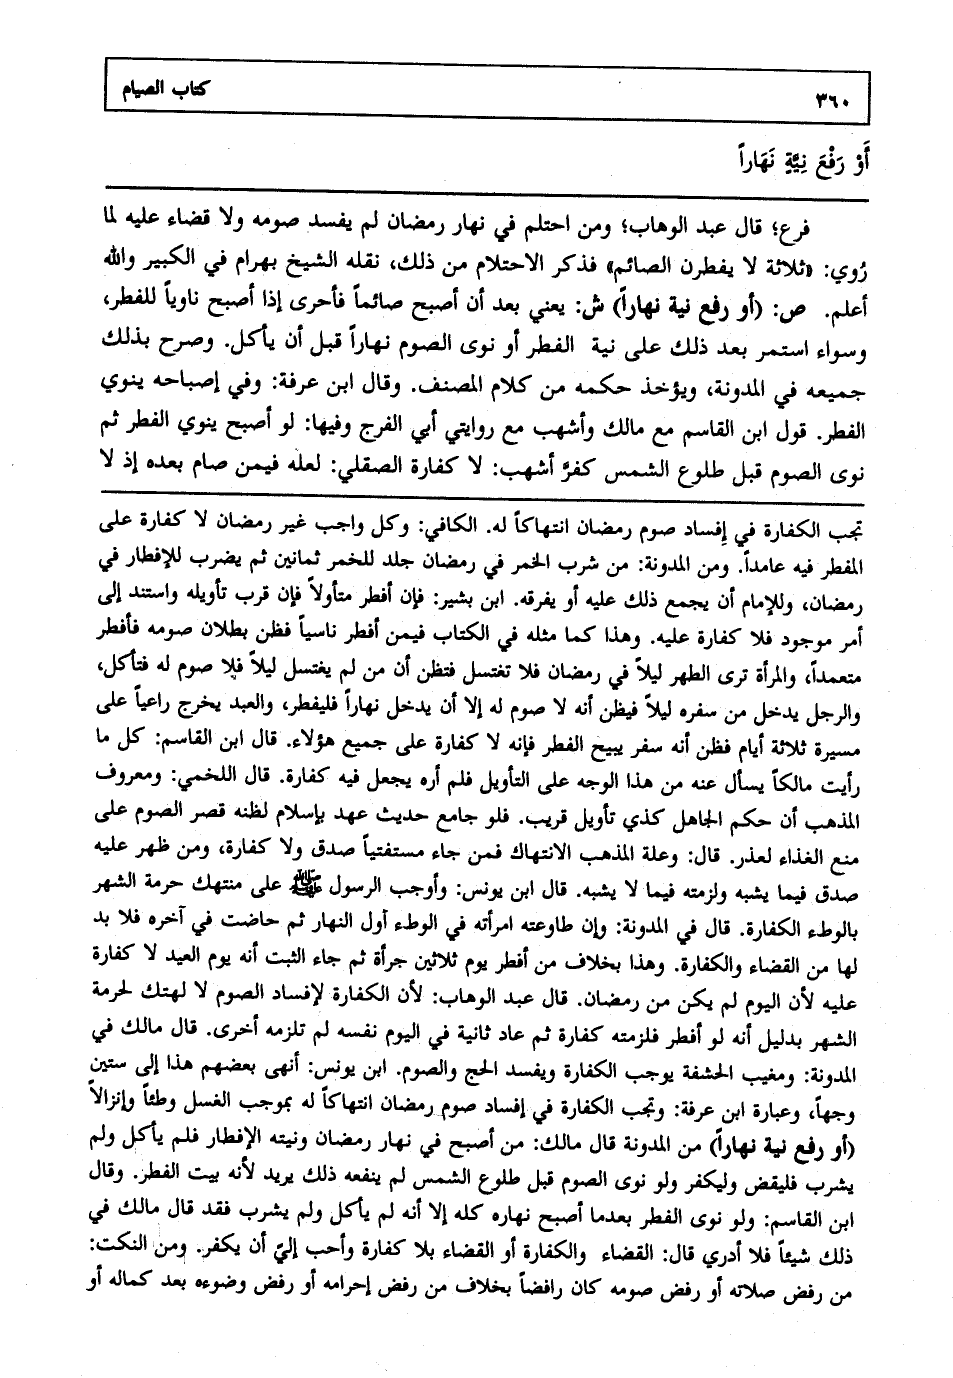 ٣٦٠ كتاب الصيام
أَوْ رَفْعَ نِيَّةٍ نَهَاراً
فرع؛ قال عبد الوهاب؛ ومن احتلم في نهار رمضان لم يفسد صومه ولا قضاء عليه لما
رُوي: «ثلاثة لا يفطرن الصائم» فذكر الاحتلام من ذلك، نقله الشيخ بهرام في الكبير والله
أعلم. ص: (أو رفع نية نهاراً) ش: يعني بعد أن أصبح صائماً فأحرى إذا أصبح ناوياً للفطر،
وسواء استمر بعد ذلك على نية الفطر أو نوى الصوم نهاراً قبل أن يأكل. وصرح بذلك
جميعه في المدونة، ويؤخذ حكمه من كلام المصنف. وقال ابن عرفة: وفي إصباحه ينوي
الفطر. قول ابن القاسم مع مالك وأشهب مع روايتي أبي الفرج وفيها: لو أصبح ينوي الفطر ثم
نوى الصوم قبل طلوع الشمس كفرَّ أشهب: لا كفارة الصقلي: لعله فيمن صام بعده إذ لا
تجب الكفارة في إفساد صوم رمضان انتهاكاً له. الكافي: وكل واجب غير رمضان لا كفارة على
المفطر فيه عامداً. ومن المدونة: من شرب الخمر في رمضان جلد للخمر ثمانين ثم يضرب للإفطار في
رمضان، وللإمام أن يجمع ذلك عليه أو يفرقه. ابن بشير: فإن أفطر متأولاً فإن قرب تأويله واستند إلى
أمر موجود فلا كفارة عليه. وهذا كما مثله في الكتاب فيمن أفطر ناسياً فظن بطلان صومه فأفطر
متعمداً، والمرأة ترى الطهر ليلاً في رمضان فلا تغتسل فتظن أن من لم يغتسل ليلاً فلا صوم له فتأكل،
والرجل يدخل من سفره ليلاً فيظن أنه لا صوم له إلا أن يدخل نهاراً فليفطر، والعبد يخرج راعياً على
مسيرة ثلاثة أيام فظن أنه سفر يبيح الفطر فإنه لا كفارة على جميع هؤلاء. قال ابن القاسم: كل ما
رأيت مالكاً يسأل عنه من هذا الوجه على التأويل فلم أره يجعل فيه كفارة. قال اللخمي: ومعروف
المذهب أن حكم الجاهل كذي تأويل قريب. فلو جامع حديث عهد بإسلام لظنه قصر الصوم على
منع الغذاء لعذر. قال: وعلة المذهب الانتهاك فمن جاء مستفتياً صدق ولا كفارة، ومن ظهر عليه
صدق فيما يشبه ولزمته فيما لا يشبه. قال ابن يونس: وأوجب الرسول ﷺ على منتهك حرمة الشهر
بالوطء الكفارة. قال في المدونة: وإن طاوعته امرأته في الوطء أول النهار ثم حاضت في آخره فلا بد
لها من القضاء والكفارة. وهذا بخلاف من أفطر يوم ثلاثين جرأة ثم جاء الثبت أنه يوم العيد لا كفارة
عليه لأن اليوم لم يكن من رمضان. قال عبد الوهاب: لأن الكفارة لإفساد الصوم لا لهتك لحرمة
الشهر بدليل أنه لو أفطر فلزمته كفارة ثم عاد ثانية في اليوم نفسه لم تلزمه أخرى. قال مالك في
المدونة: ومغيب الحشفة يوجب الكفارة ويفسد الحج والصوم. ابن يونس: أنهى بعضهم هذا إلى ستين
وجهاً، وعبارة ابن عرفة: وتجب الكفارة في إفساد صوم رمضان انتهاكاً له بموجب الغسل وطئاً وإنزالاً
(أو رفع نية نهاراً) من المدونة قال مالك: من أصبح في نهار رمضان ونيته الإفطار فلم يأكل ولم
يشرب فليقض وليكفر ولو نوى الصوم قبل طلوع الشمس لم ينفعه ذلك يريد لأنه بيت الفطر. وقال
ابن القاسم: ولو نوى الفطر بعدما أصبح نهاره كله إلا أنه لم يأكل ولم يشرب فقد قال مالك في
ذلك شيئاً فلا أدري قال: القضاء والكفارة أو القضاء بلا كفارة وأحب إليّ أن يكفر. ومن النكت:
من رفض صلاته أو رفض صومه كان رافضاً بخلاف من رفض إحرامه أو رفض وضوءه بعد كماله أو